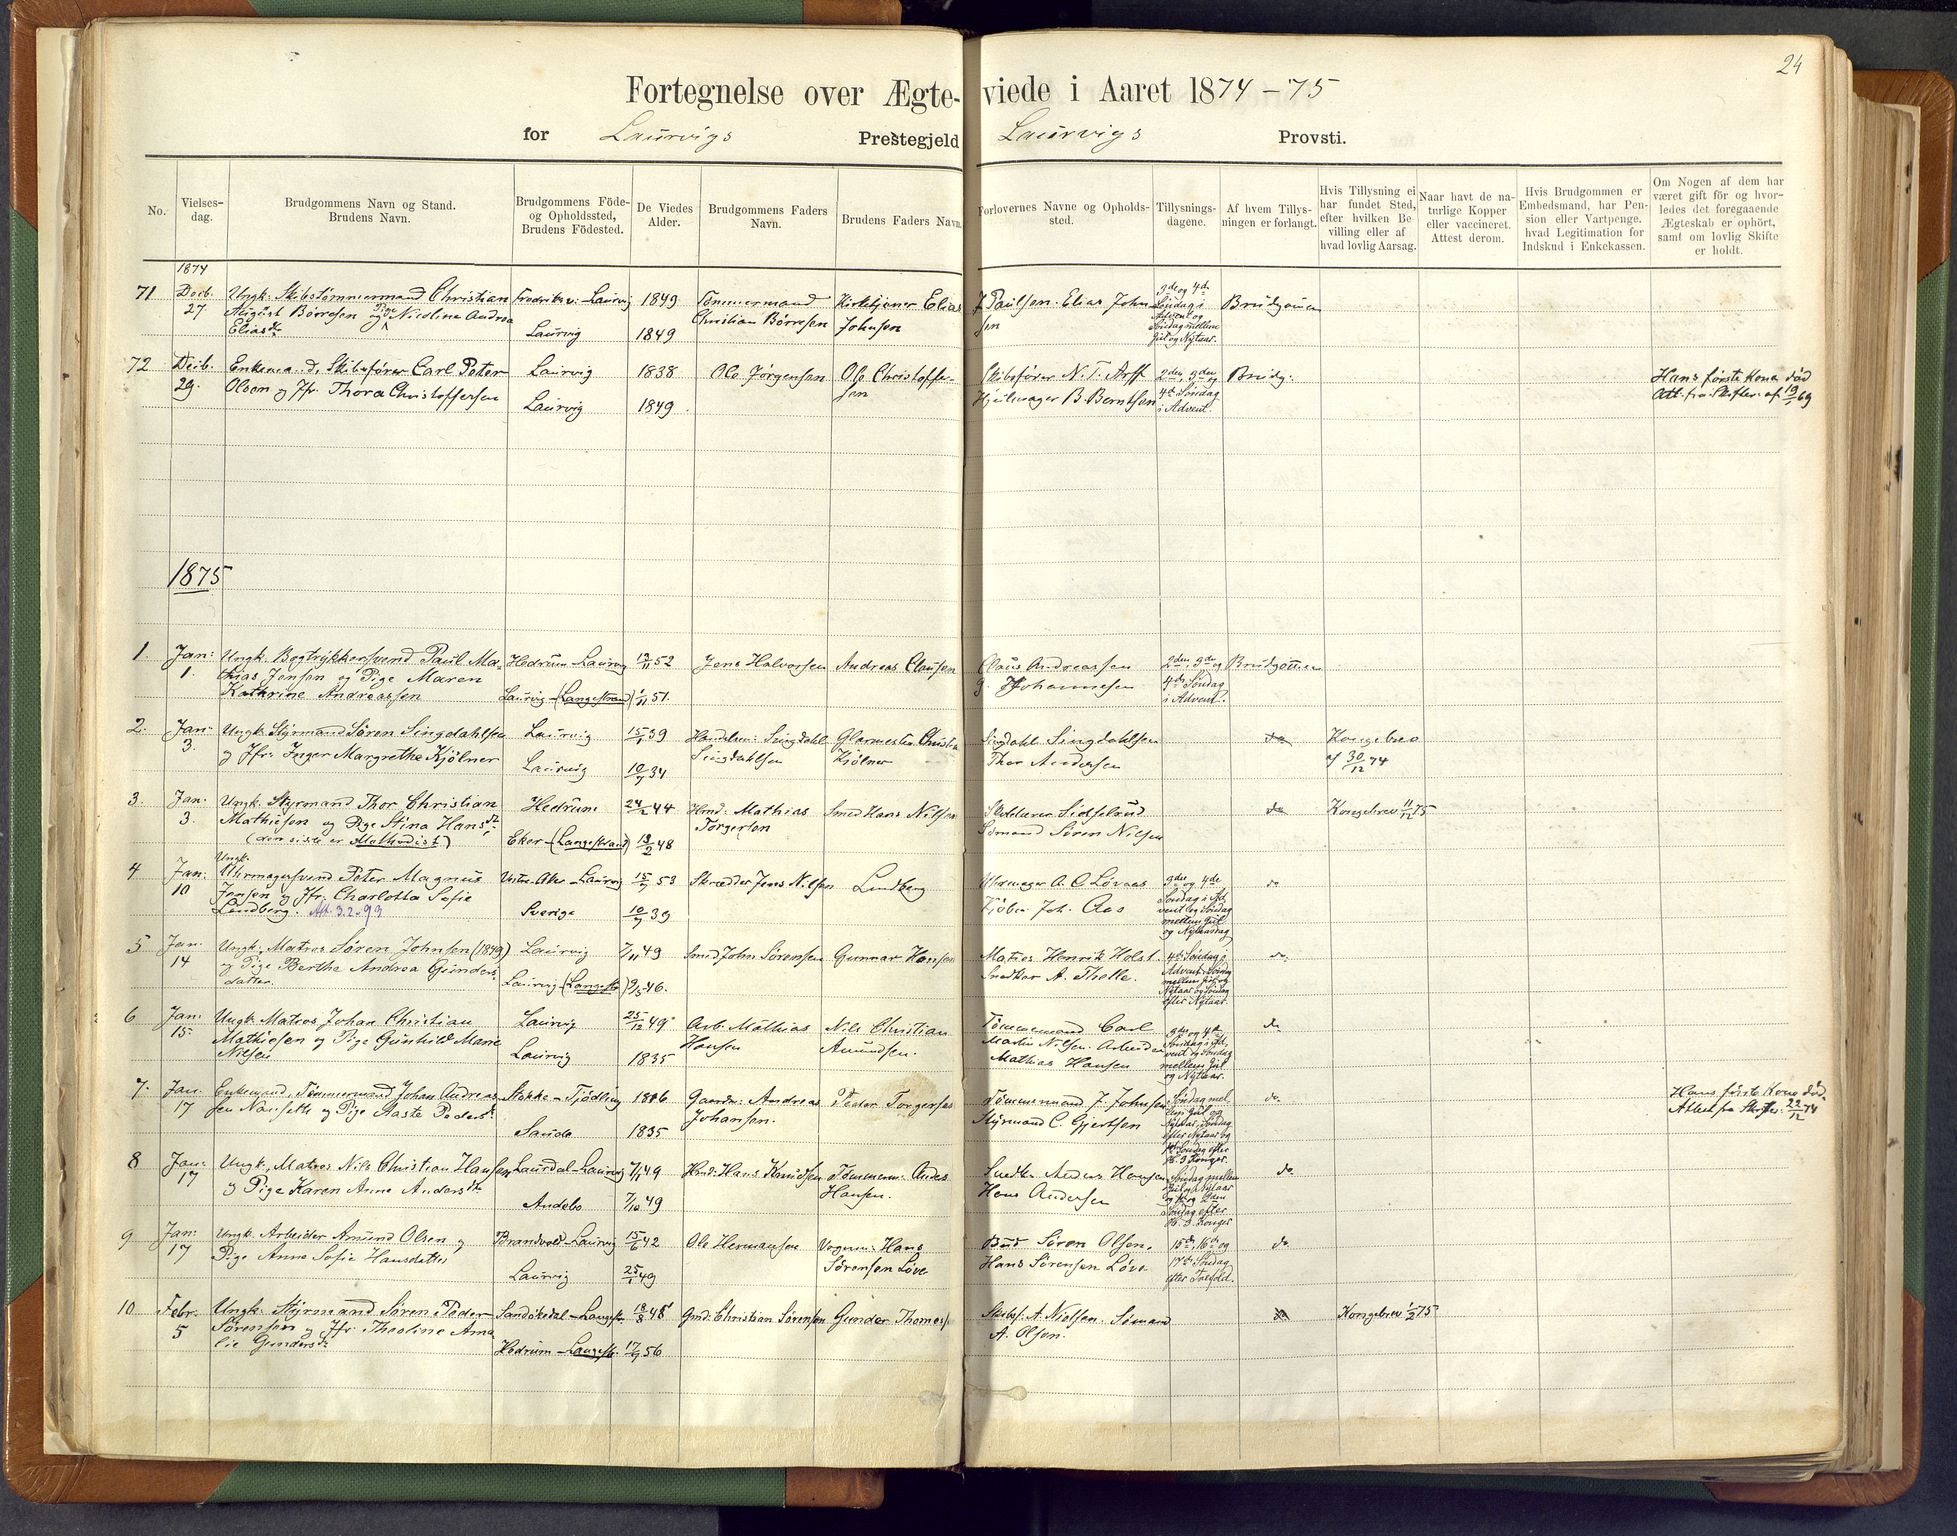 24
Fortegnelse over Ægte-viede i Aaret 1874-75
for Laurvigs Prestegjeld Laurvigs Provsti.
No.
Vielses-
dag.
Brudgommens Navn og Stand.
Brudens Navn.
Brudgommens Föde-
og Opholdssted,
Brudens Födested.
De Viedes
Alder.
Brudgommens Faders
Navn.
Brudens Faders Navn.
Forlovernes Navne og Opholds-
sted.
Tillysnings-
dagene.
Af hvem Tillys-
ningen er forlangt.
Hvis Tillysning ei
har fundet Sted,
efter hvilken Be-
villing eller af
hvad lovlig Aarsag.
Naar havt de na-
turlige Kopper
eller vaccineret.
Attest derom.
Hvis Brudgommen er
Embedsmand, har Pen-
sion eller Vartpenge,
hvad Legitimation for
Indskud i Enkekassen.
Om Nogen af dem har
været gift för og hvor-
ledes det foregaaende
Ægteskab er ophört,
samt om lovlig Skifte
er holdt.
1874
71
Decb.
27
Ungk. Skibstømmermand Christian
August Børresen og Pige Nicoline Andrea
Eliasdr
Fredriksv: Laurvig
Laurvig
1849
1849
Tømmermand
Christian Børresen
Kirketjener Elias
Johnsen
J. Paulsen. Elias John
sen
3die og 4de
Søndag i
Advent og
Søndag mellem
Jul og Nytaar.
Brudgommen
72
Decb.
29.
Enkemand, Skibsfører Carl Peter
Olsen og Jfr. Thora Christoffersen
Laurvig
Laurvig
1838
1849.
Ole Jørgensen
Ole Christoffer-
sen
Skibsfører N. T. Arff
Hjulmager B. Berntsen
2den, 3den og
4de Søndag
i Advent.
Brudg.
Hans første Kone død
Att. fra Skifter. af 19/1 69
1875
1.
Jan:
1.
Ungk. Bogtrykkersvend Paul Ma-
thias Jensen og Pige Maren
Kathrine Andreassen
Hedrum-Laurvig
Laurvig-(Langestrand)
19/11 52
1/11 51.
Jens Halvorsen
Andreas Clausen
Claus Andreassen
J. Johannesen
2den, 3de og
4de Søndag
i Advent.
Brudgommen
2.
Jan:
3.
Ungk. Styrmand Søren Singdahlsen
og Jfr. Inger Margrethe Kjølner
Laurvig
Laurvig
15/1 39
10/7 34
Handelsm: Singdahl
Singdahlsen
Glarmester Christian
Kjølner
Singdahl Singdahlsen
Thor Andersen
do
Kongebrev
af 30/12 74
3
Jan.
3.
Ungk. Styrmand Thor Christian
Mathiesen og Pige Stina Hansdtr
(den sidste er Methodist)
Hedrum
Eker-(Langestrand)
24/2 44
13/2 48
Hmd. Mathias
Torgersen
Smed Hans Nilsen
Sømand Søren Nilsen
do
Kongebrev 11/12 75
4
Jan:
10
Ungk.
Uhrmagersvend Peter Magnus
Jensen og Jfr. Charlotta Sofie
Lindberg. Att. 3.2.93
Vestre Aker-Laurvig
Sverige
15/7 53
10/7 39
Skrædder Jens Nilsen
Lindberg
Uhrmager A. C. Løvaas
Kjøbm Joh. Aas
3die og 4de
Søndag i Ad-
vent og Søndag
mellem Jul
og Nytaarsdag
do
5
Jan.
14
Ungk. Matros Søren Johnsen (1849)
og Pige Berthe Andrea Gunders
datter.
Laurvig
Laurvig (Langestr)
7/11 49
9/5 46.
Smed John Sørensen
Gunnar Hansen
Matros Henrik Holst
Snedker A. Tholle.
4de Søndag i
Advent, Søndag
mellem Jul og
Nytaar og Søndag
efter Nytaar.
do.
6
Jan:
15.
Ungk. Matros Johan Christian
Mathiesen og Pige Gunhild Marie
Nilsen
Laurvig
Laurvig
25/12 49
1835
Arb. Mathias
Hansen
Nils Christian
Amundsen.
Tømmermand Carl
Martin Nilsen. Arbeider
Mathias Hansen
3die og 4de
Søndag i Ad-
vent og Søndag
mellem Jul
og Nytaar.
do.
7.
Jan.
17
Enkemand, Tømmermand Johan Andreas-
sen Nauseth og Pige Aaste Pedersdr
Stokke-Tjødling
Saude
1816
1835
Gaardm. Andreas
Johansen.
Peder Torgersen
Tømmermand J. Johnsen
Styrmand C. Gjertsen
Søndag mel-
lem Jul og
Nytaar, Søndag
efter Nytaar og
1ste Søndag efter
H. 3 Konger.
do.
Hans første Kone død
Attest fra Skifter. 22/12 74
8
Jan:
17
Ungk, Matros Nils Christian Hansen
og Pige Karen Anne Andersdtr
Laurdal-Laurvig
Andebo
7/1 49
7/10 49
Hmd. Hans Knudsen
Tømmerm: Anders
Hansen.
Snedk. Anders Hansen
Hans Andersen
Søndag mellem
Jul og Nytaar
og 1ste og 2den
Søndag efter
H. 3. Konger
do
9
Jan:
17
Ungk. Arbeider Amund Olsen og
Pige Anne Sofie Hansdatter
Brandvold-Laurvig
Laurvig
15/6 42
25/1 49
Ole Hermansen
Vognm: Hans
Sørensen Løve
Bud Søren Olsen.
Hans Sørensen Løve
15de, 16de og
17de Søndag
efter Trefold.
do.
10
Febr.
5
Ungk. Styrmand Søren Peder
Sørensen og Jfr. Theoline Ama
lie Gundersdr
Sandøkedal-Langestr.
Hedrum-Langestr.
18/8 48
17/9 56
Gmd. Christian Sørensen
Gunder Thomes
Skibsf. A. Nielsen. Sømand
A. Olsen.
do
Kongebrev 1/2 75